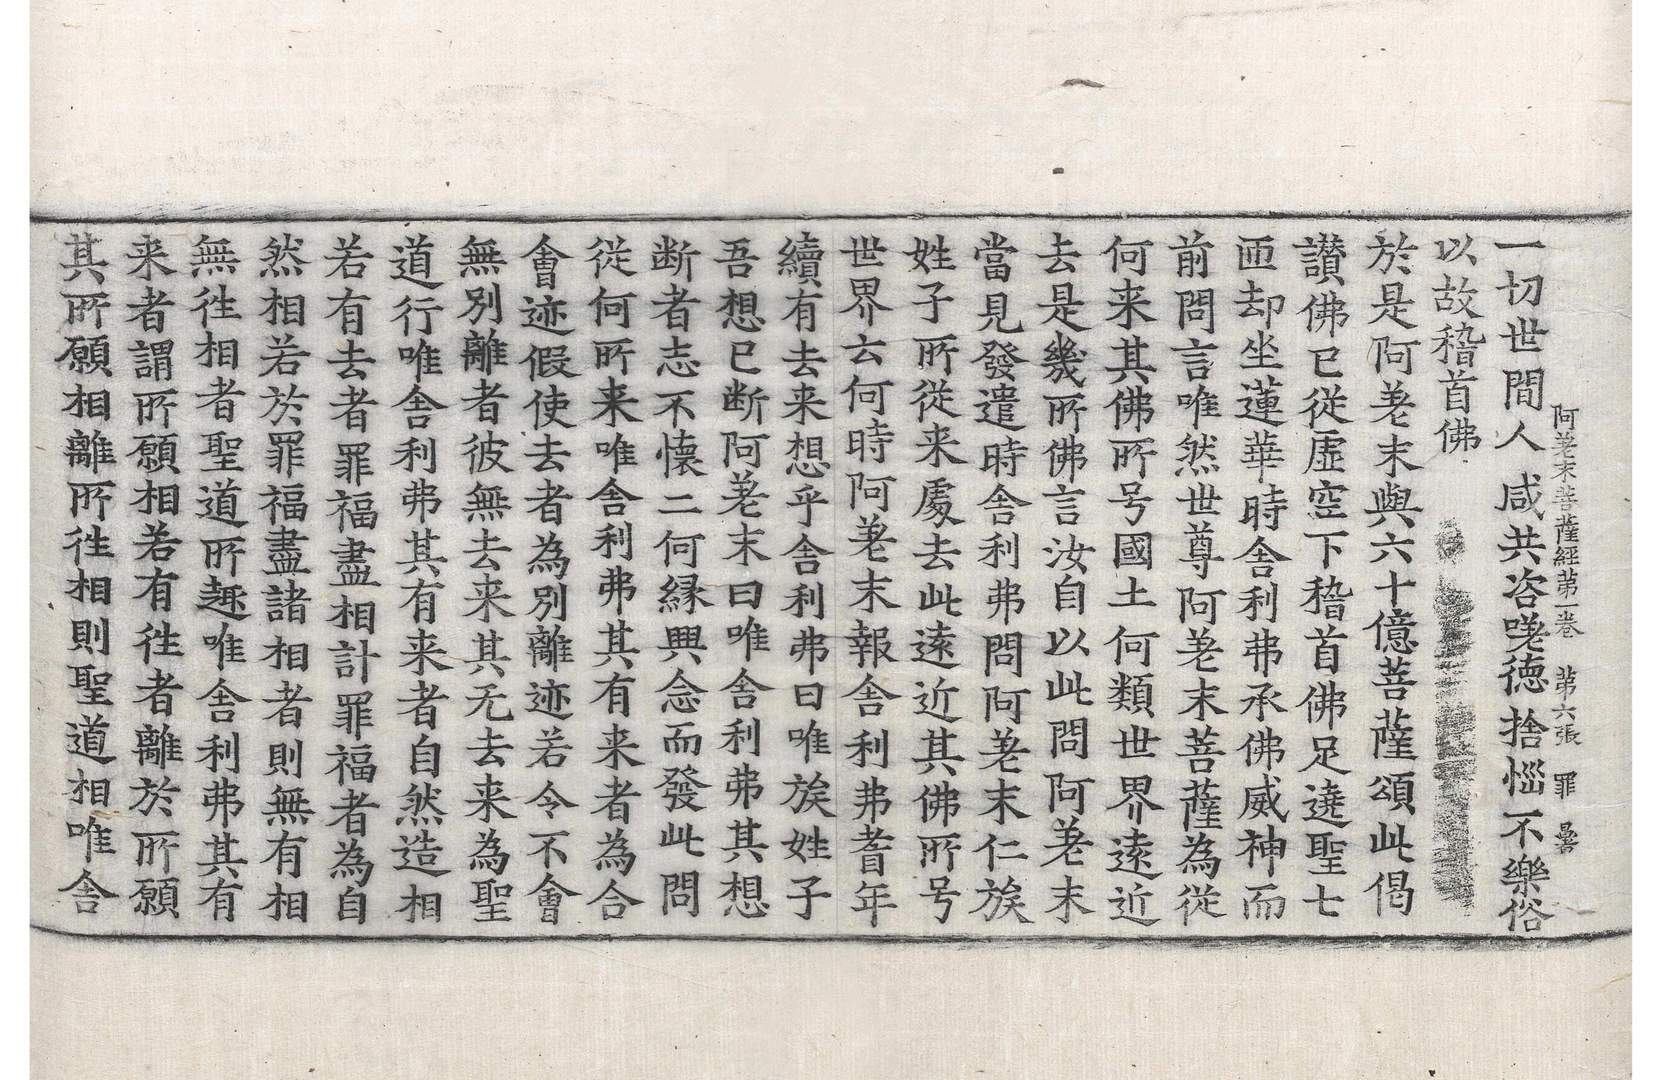 阿差末菩薩經第一卷 第六張 罪
一切世間人咸共咨嗟德捨惱不樂俗
以故稽首佛
於是阿差末與六十億菩薩頌此偈
讃佛已從虛空下稽首佛足遶聖七
匝却坐蓮華時舍利弗承佛威神而
前問言唯然世尊阿差末菩薩為從
何来其佛所号國土何類世界遠近
去是幾所佛言汝自以此問阿差末
當見發遣時舍利弗問阿差末仁族
姓子所從来處去此遠近其佛所号
世界云何時阿差末報舍利弗耆年
續有去来想乎舍利弗曰唯族姓子
吾想已断阿差末曰唯舍利弗其想
断者志不懷二何縁興念而發此問
從何所来唯舍利弗其有来者為合
會迹假使去者為別離迹若令不會
無別離者彼無去来其无去来為聖
道行唯舍利弗其有来者自然造相
若有去者罪福盡相計罪福者為自
然相若於罪福盡諸相者則無有相
無徃相者聖道所趣唯舍利弗其有
来者謂所願相若有徃者離於所願
其所願相離所徃相則聖道相唯舍